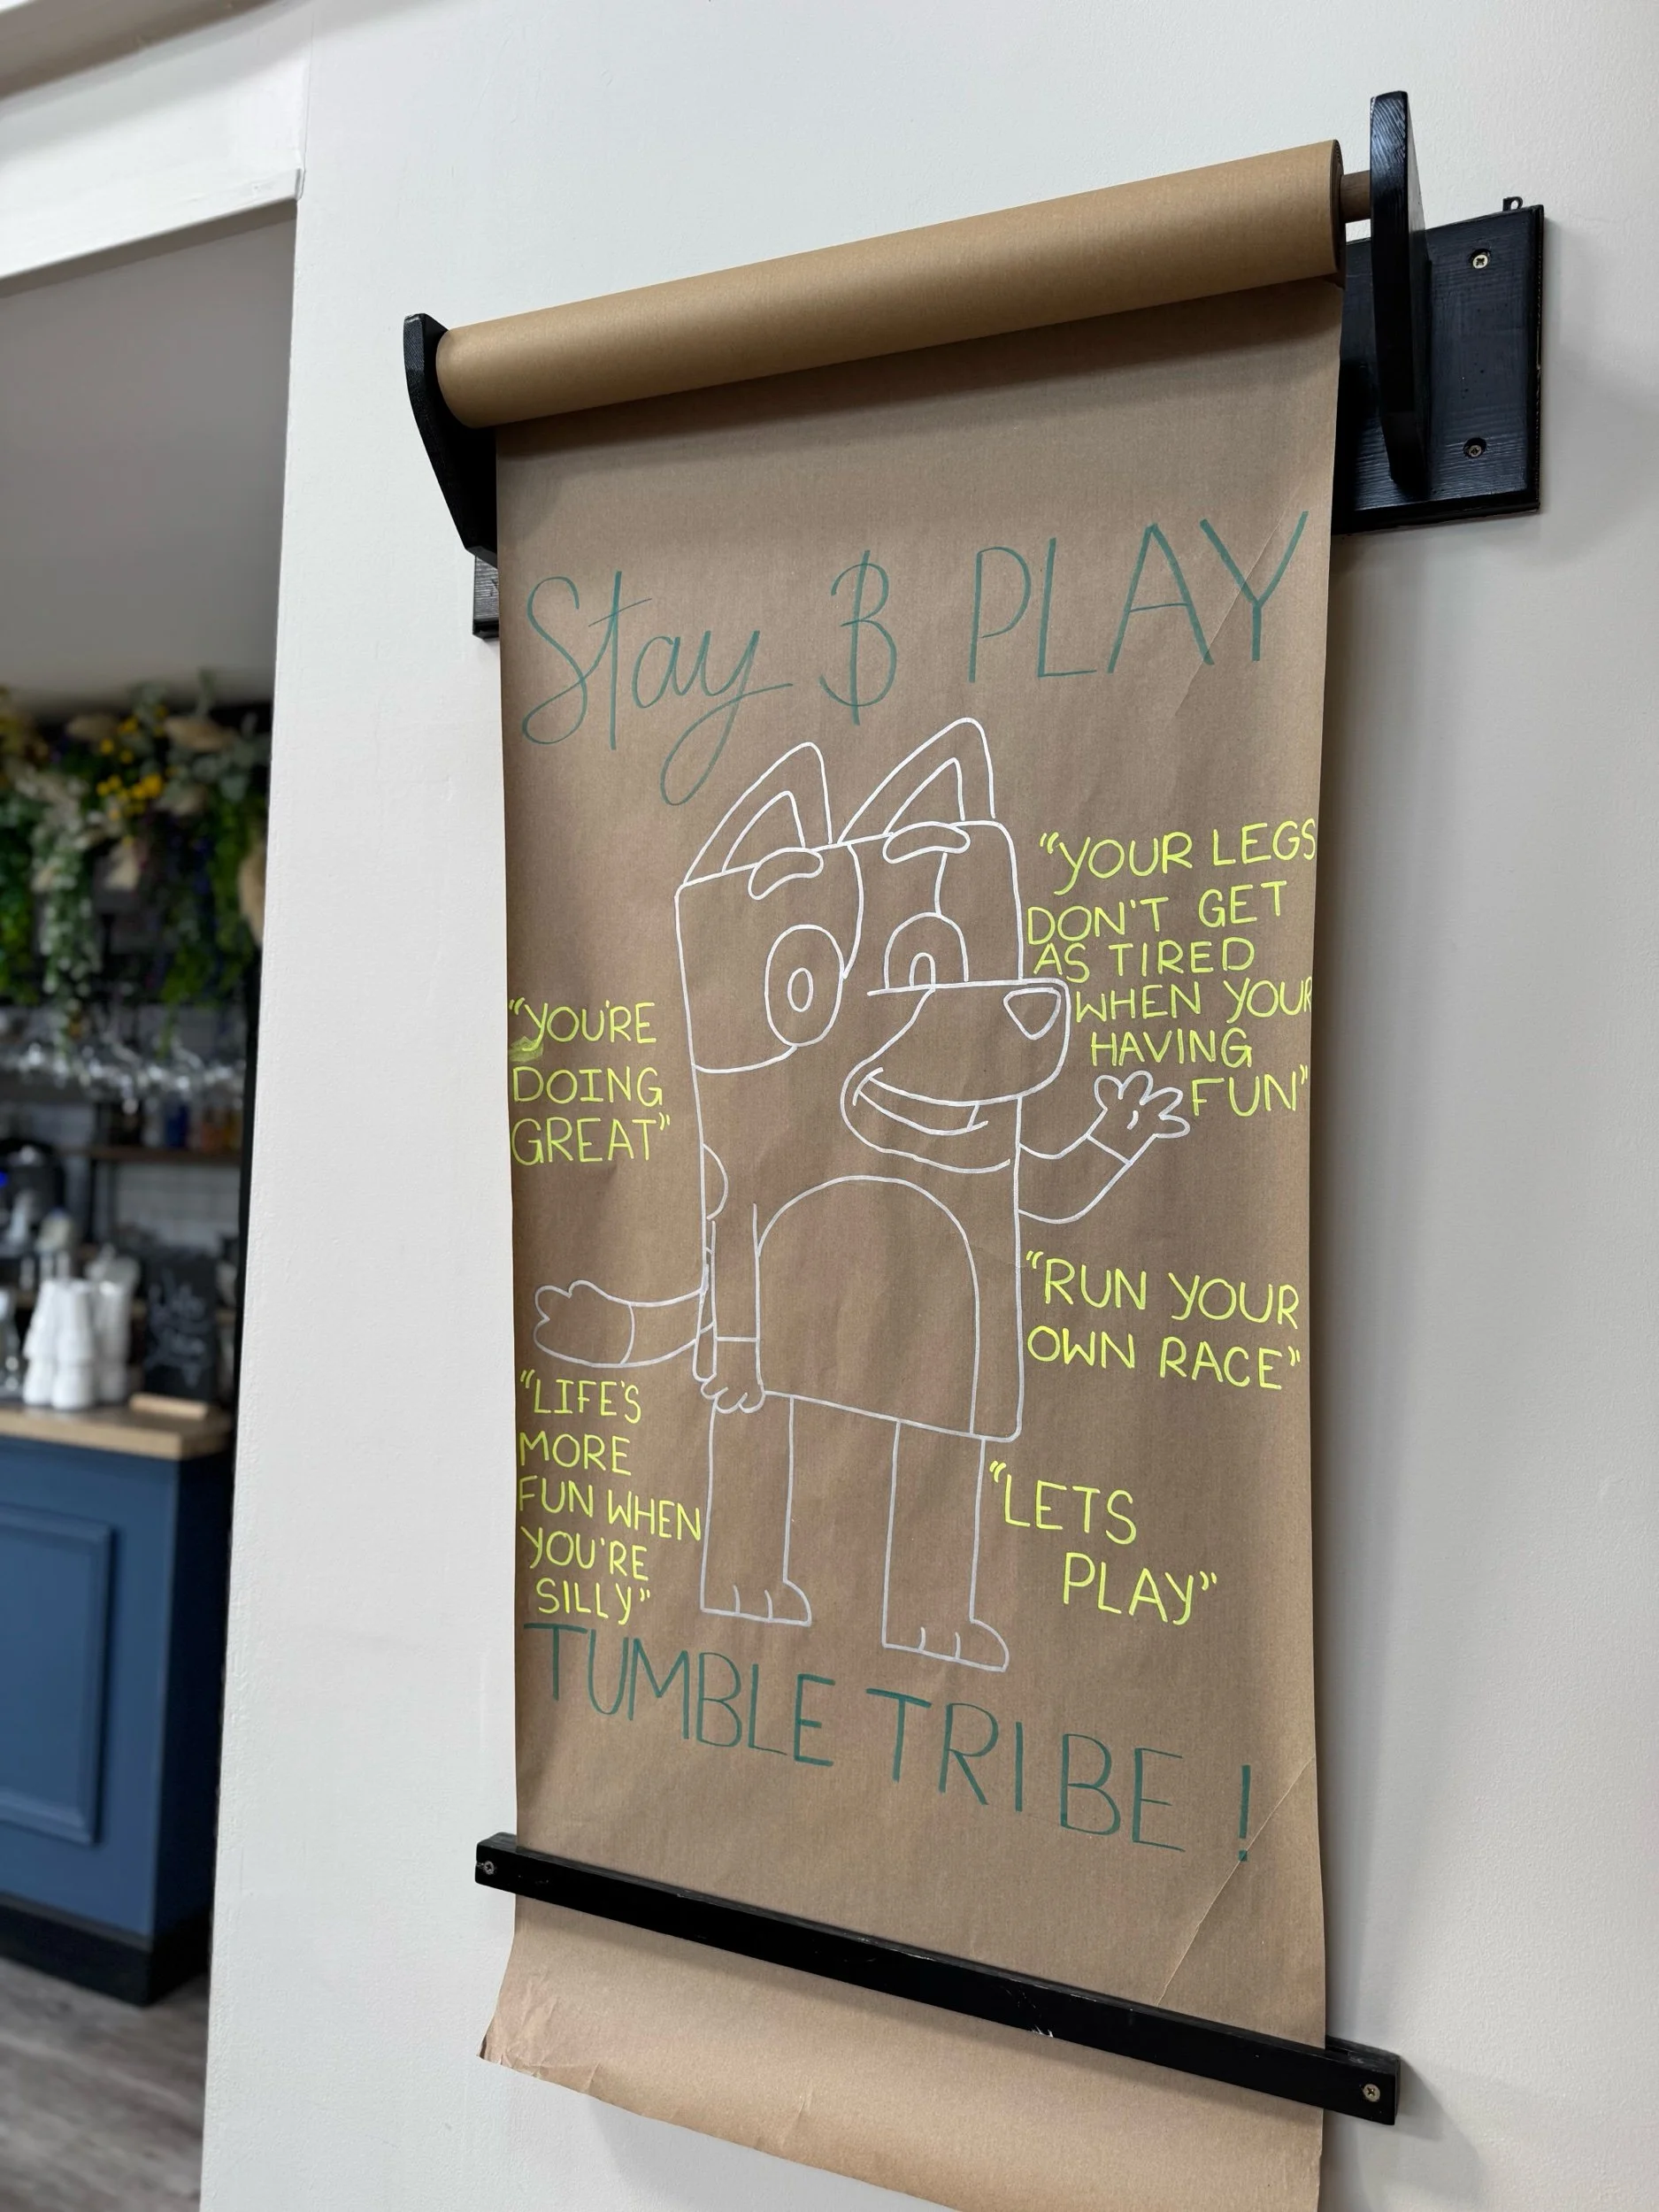 Stay & PLAY
"YOUR LEGS
DON'T GET
AS TIRED
WHEN YOUR
HAVING
FUN"
"YOU'RE
DOING
GREAT"
"RUN YOUR
OWN RACE"
"LIFE'S
MORE
FUN WHEN
YOU'RE
SILLY"
"LETS
PLAY"
TUMBLE TRIBE!